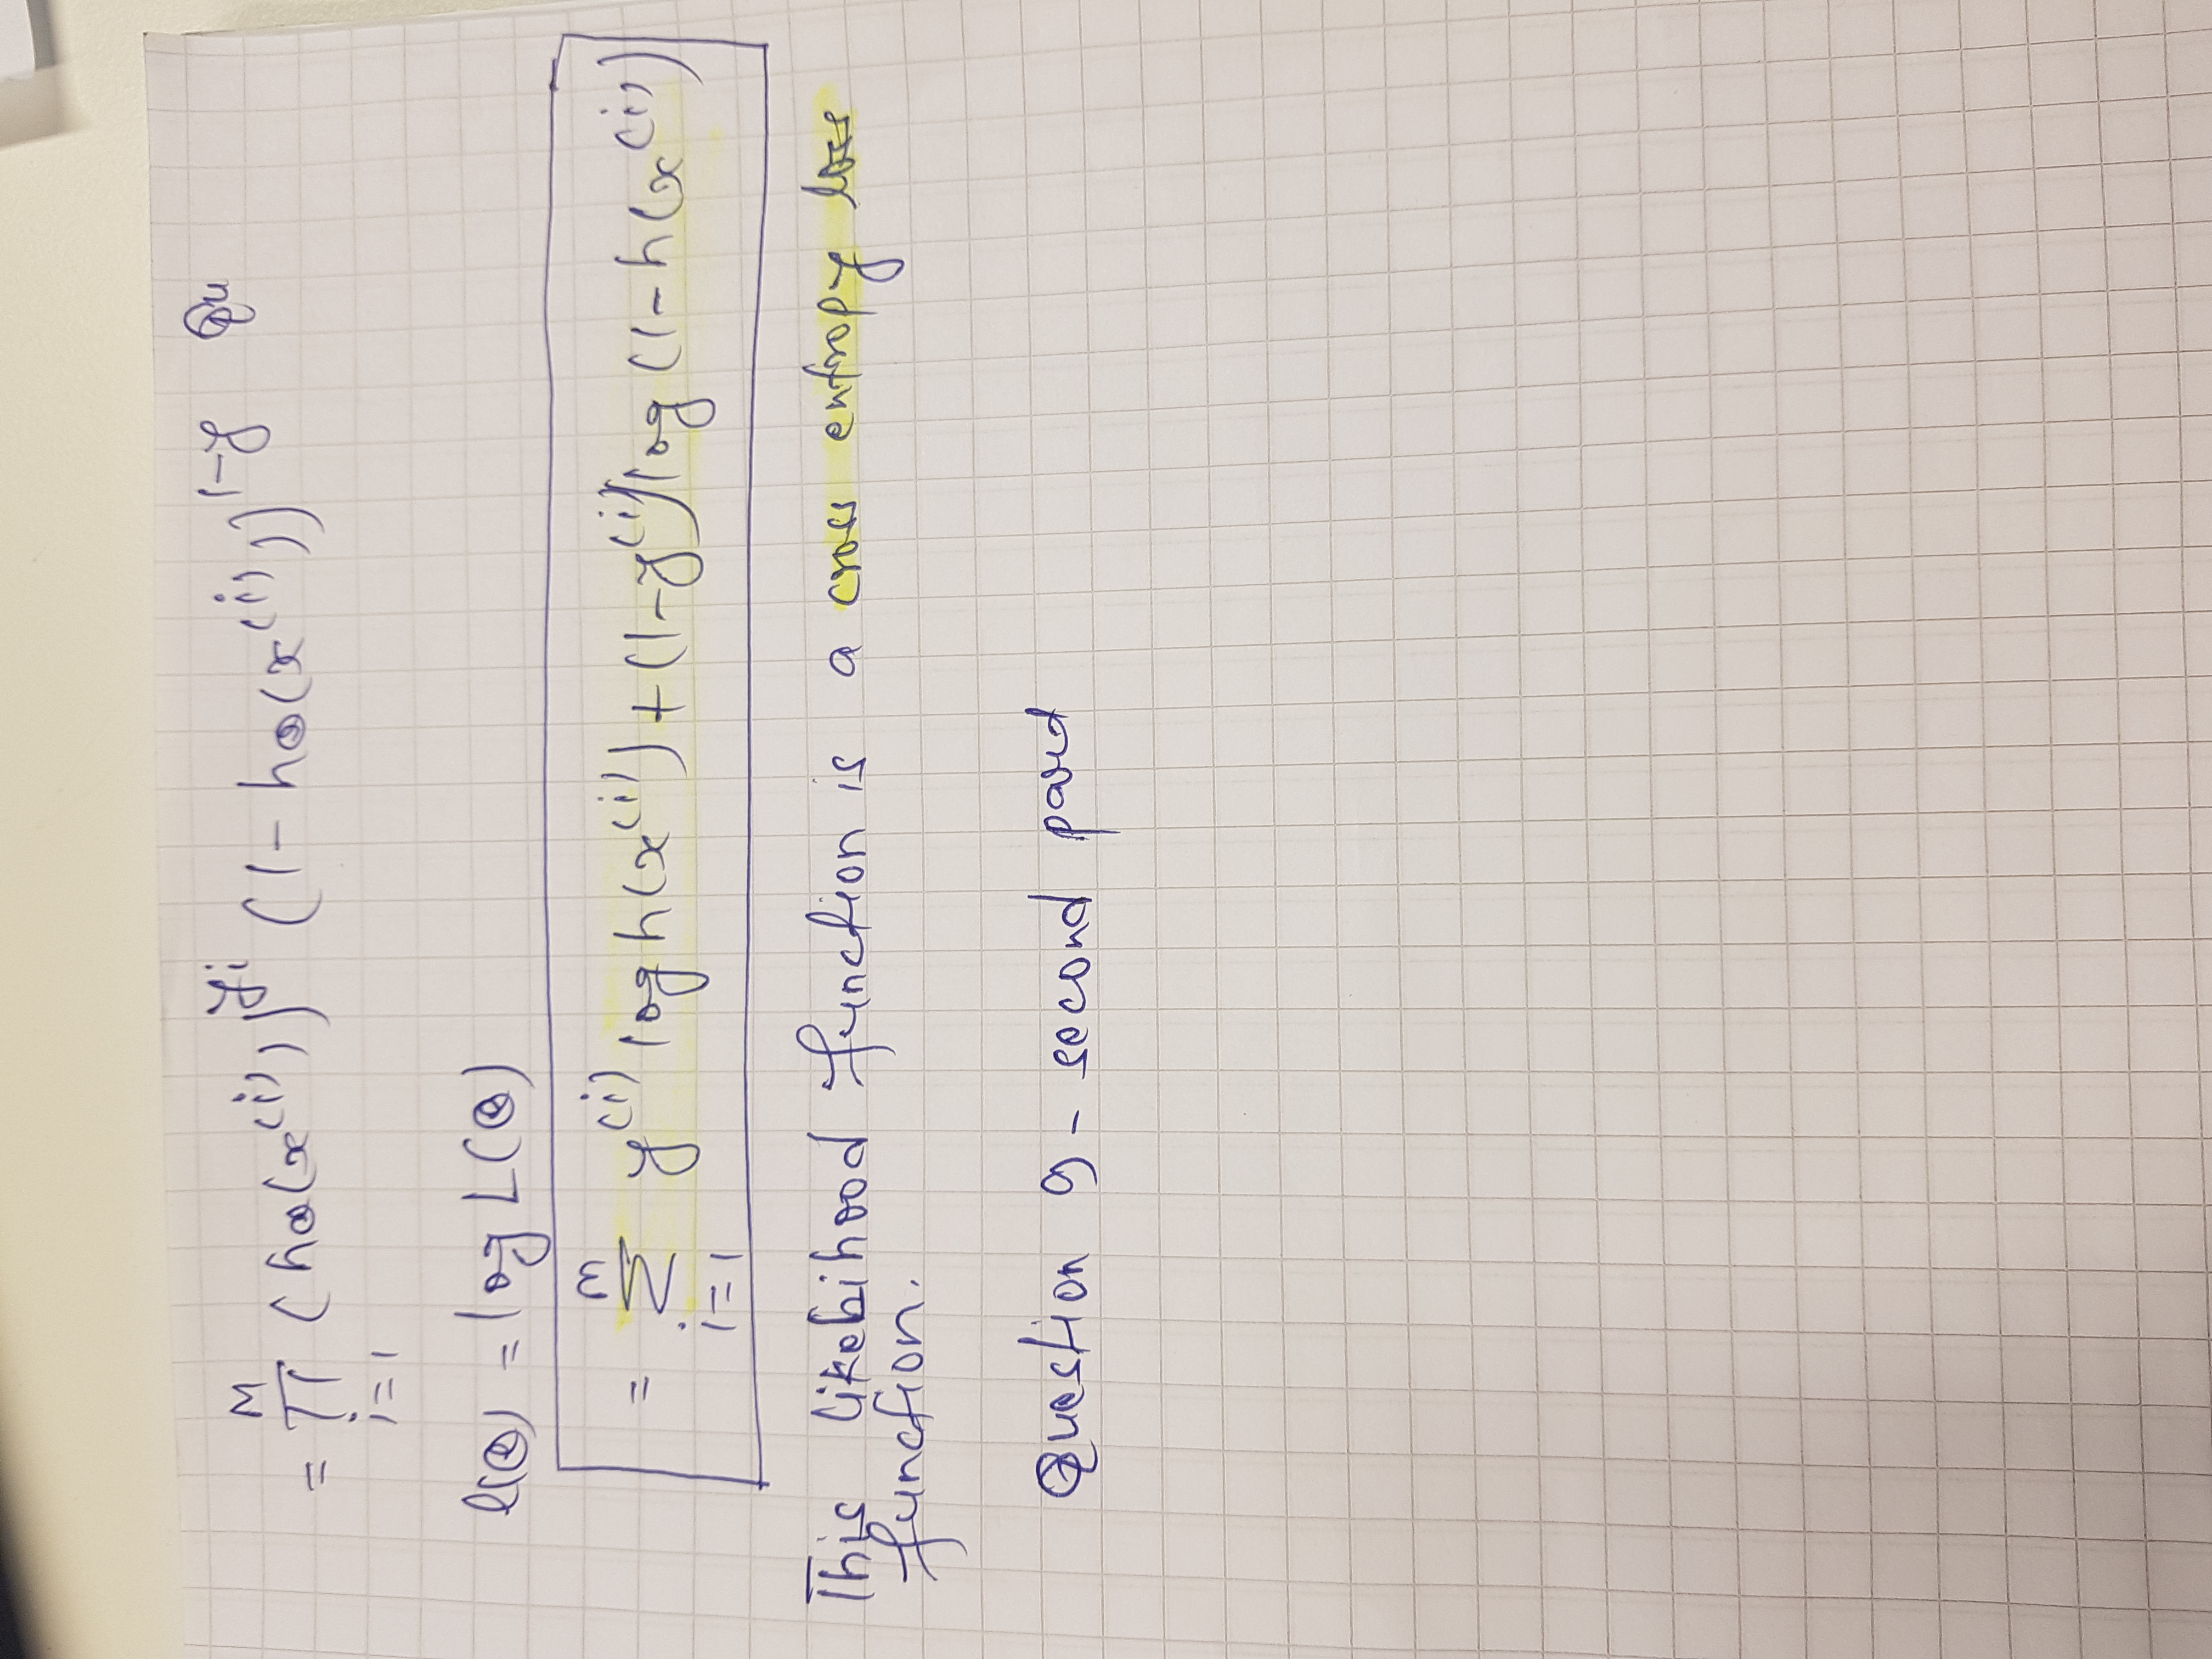 = ∏_{i=1}^{M} (hθ(x^(i)))^{yi} (1-hθ(x^(i)))^{1-y} Qu
l(θ) = log L(θ)
= ∑_{i=1}^{m} y^(i) log h(x^(i)) + (1-y^(i)) log (1-h(x^(i))
This likelihood function is a cross entropy loss
function.
Question 9 - second part